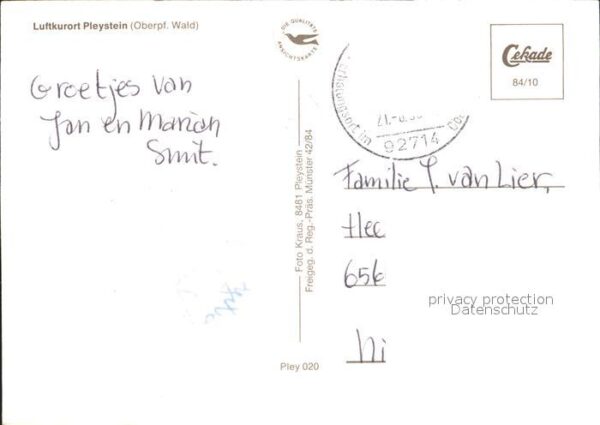 Luftkurort Pleystein (Oberpf. Wald)
DIE QUALITÄTS
ANSICHTSKARTE
Cekade
84/10
Groetjes van
Jan en Marian
Smit.
92714
Foto Kraus, 8481 Pleystein
Freigeg. d. Reg.-Präs. Münster 42/84
Familie J. van Lier,
656
privacy protection
Datenschutz
Pley 020